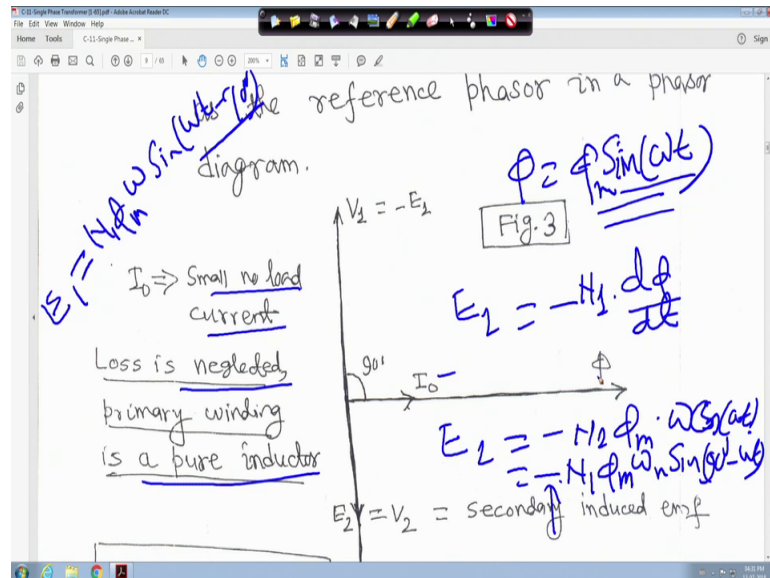 C-11-Single Phase Transformer [1-65].pdf - Adobe Acrobat Reader DC
File Edit View Window Help
Home Tools C-11-Single Phase... ×
Sign
9 / 65
200%
as the reference phasor in a phasor
diagram.
E1 = N1 φm ω Sin(ωt-90°)
φ = φm Sin(ωt)
V1 = -E1
Fig. 3
I0 ⇒ Small no load
current
E1 = -N1 . dφ/dt
Loss is neglected,
primary winding
is a pure inductor
90°
I0
φ
E1 = -N1 φm . ω Cos(ωt)
= -N1 φm ω Sin(90°-ωt)
E2 = V2 = secondary induced emf
04:31 PM